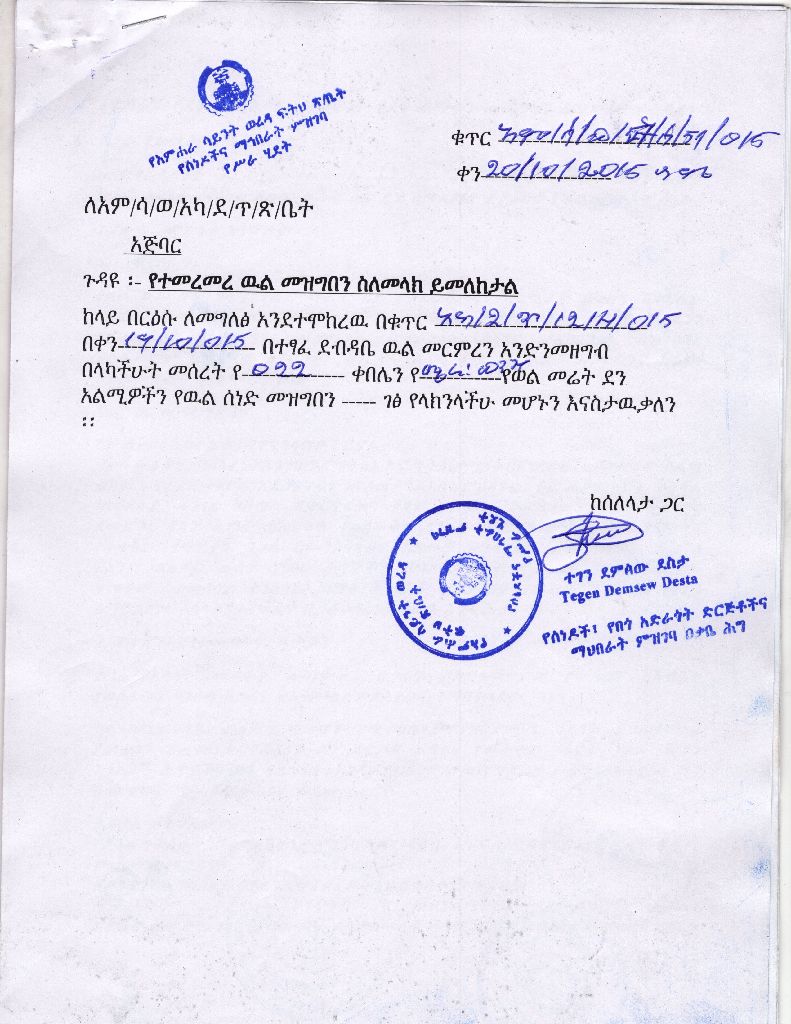 የአምሐራ ሳይንት ወረዳ ፍትህ ጽ/ቤት
የሰነዶችና ማኅበራት ምዝገባ
የሥራ ሂደት
ቁጥር
ቀን 20/10/2015 ዓ.ም
ለአም/ሳ/ወ/አካ/ደ/ጥ/ጽ/ቤት
አጅባር
ጉዳዩ ፡- የተመረመረ ዉል መዝግበን ስለመላክ ይመለከታል
ከላይ በርዕሱ ለመግለፅ እንደተሞከረዉ በቁጥር
በቀን 19/10/015 በተፃፈ ደብዳቤ ዉል መርምረን እንድንመዘግብ
በላካችሁት መሰረት የ 022 ቀበሌን የ የወል መሬት ደን
አልሚዎችን የዉል ሰነድ መዝግበን ----- ገፅ የላክንላችሁ መሆኑን እናስታዉቃለን
፡፡
ከሰለላታ ጋር
ተገን ደምለው ደስታ
Tegen Demsew Desta
የሰነዶች፣ የበጎ አድራጎት ድርጅቶችና
ማህበራት ምዝገባ ዐቃቤ ሕግ